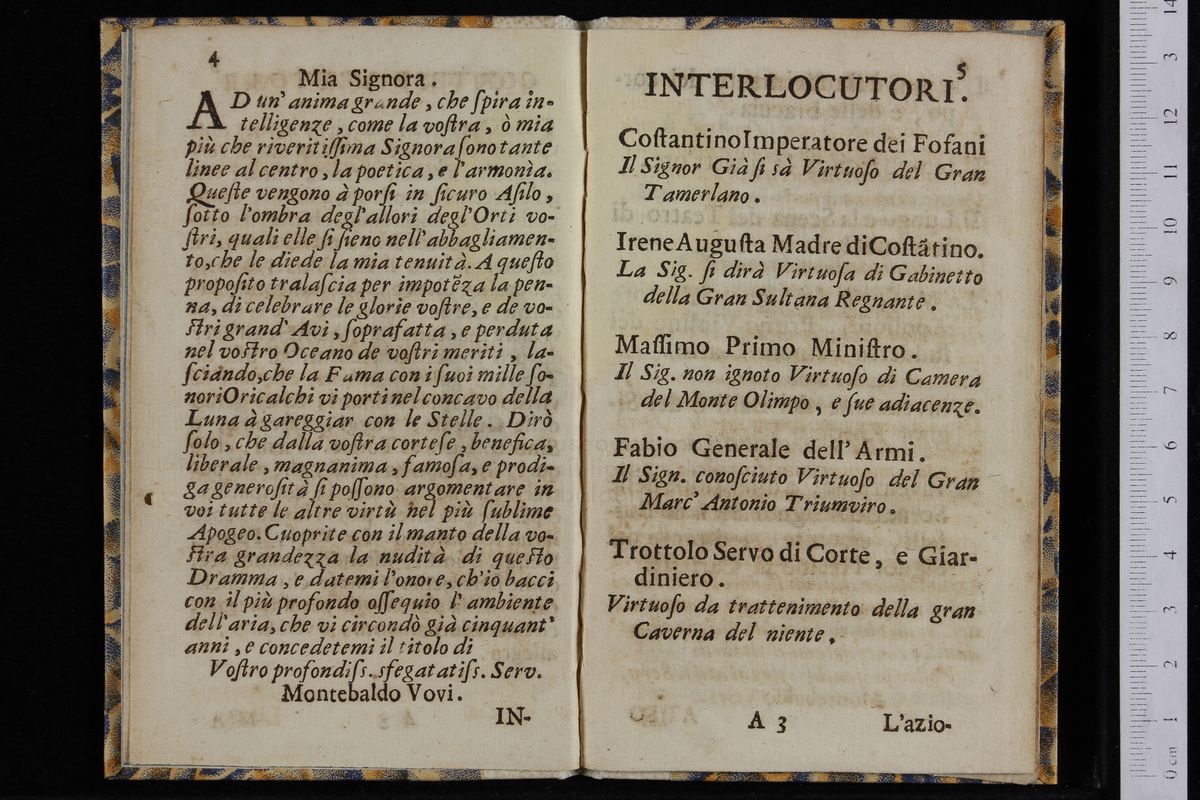 4
Mia Signora.
AD un' anima grande, che ſpira in-
telligenze, come la voſtra, ò mia
più che riveritiſſima Signora ſono tante
linee al centro, la poetica, e l'armonìa.
Queſte vengono à porſi in ſicuro Aſilo,
ſotto l'ombra degl'allori degl'Orti vo-
ſtri, quali elle ſi ſieno nell'abbagliamen-
to, che le diede la mia tenuità. A queſto
propoſito tralaſcia per impotẽza la pen-
na, di celebrare le glorie voſtre, e de vo-
ſtri grand' Avi, ſoprafatta, e perduta
nel voſtro Oceano de voſtri meriti, la-
ſciando, che la Fama con i ſuoi mille ſo-
nori Oricalchi vi porti nel concavo della
Luna à gareggiar con le Stelle. Dirò
ſolo, che dalla voſtra corteſe, benefica,
liberale, magnanima, famoſa, e prodi-
ga generoſità ſi poſſono argomentare in
voi tutte le altre virtù nel più ſublime
Apogeo. Cuoprite con il manto della vo-
ſtra grandezza la nudità di queſto
Dramma, e datemi l'onore, ch'io bacci
con il più profondo oſſequio l' ambiente
dell'aria, che vi circondò già cinquant'
anni, e concedetemi il titolo di
Voſtro profondiſs. sfegatatiſs. Serv.
Montebaldo Vovi.
IN-
5
INTERLOCUTORI.
Coſtantino Imperatore dei Fofani
Il Signor Già ſi sà Virtuoſo del Gran
Tamerlano.
Irene Auguſta Madre di Coſtãtino.
La Sig. ſi dirà Virtuoſa di Gabinetto
della Gran Sultana Regnante.
Maſſimo Primo Miniſtro.
Il Sig. non ignoto Virtuoſo di Camera
del Monte Olimpo, e ſue adiacenze.
Fabio Generale dell' Armi.
Il Sign. conoſciuto Virtuoſo del Gran
Marc' Antonio Triumviro.
Trottolo Servo di Corte, e Giar-
diniero.
Virtuoſo da trattenimento della gran
Caverna del niente.
A 3
L'azio-
0 cm 1 2 3 4 5 6 7 8 9 10 11 12 13 14